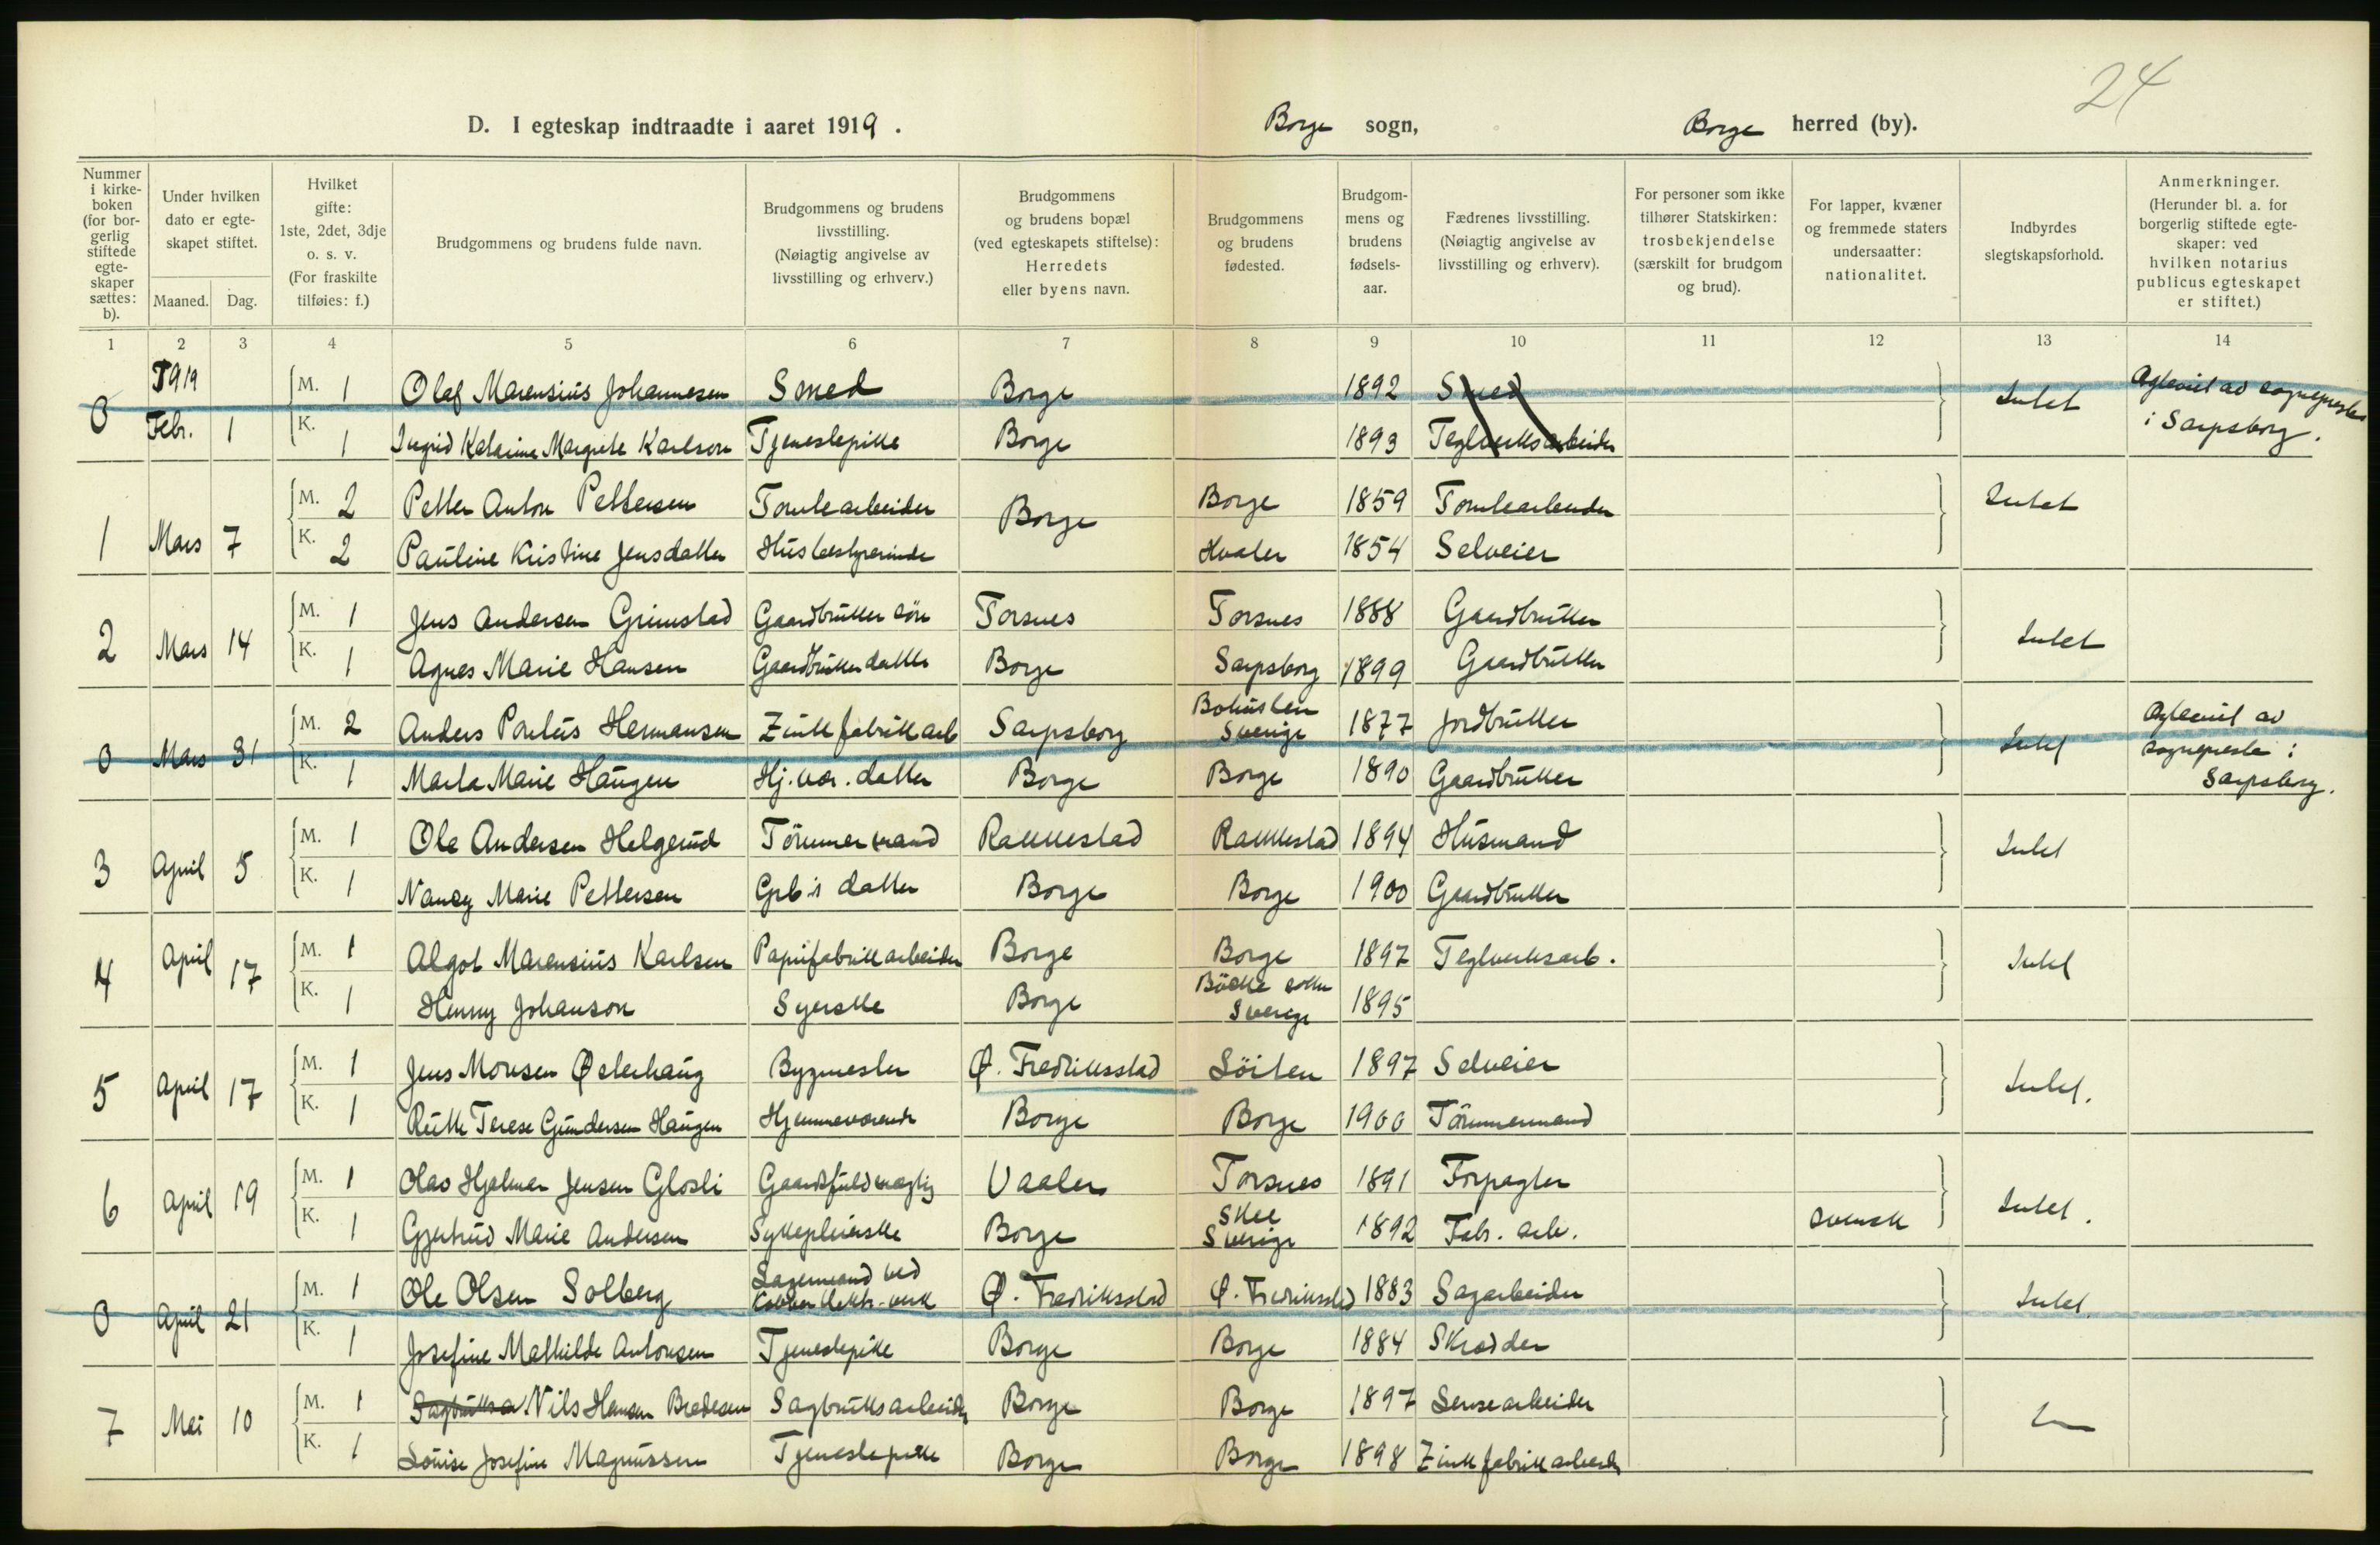 24
D. I egteskap indtraadte i aaret 1919. Borge sogn, Borge herred (by).
Nummer i kirke-boken (for bor-gerlig stiftede egte-skaper sættes: b).
Under hvilken dato er egte-skapet stiftet.
Maaned. Dag.
Hvilket gifte: 1ste, 2det, 3dje o. s. v. (For fraskilte tilføies: f.)
Brudgommens og brudens fulde navn.
Brudgommens og brudens livsstilling. (Nøiagtig angivelse av livsstilling og erhverv.)
Brudgommens og brudens bopæl (ved egteskapets stiftelse): Herredets eller byens navn.
Brudgommens og brudens fødested.
Brudgom-mens og brudens fødsels-aar.
Fædrenes livsstilling. (Nøiagtig angivelse av livsstilling og erhverv).
For personer som ikke tilhører Statskirken: trosbekjendelse (særskilt for brudgom og brud).
For lapper, kvæner og fremmede staters undersaatter: nationalitet.
Indbyrdes slegtskapsforhold.
Anmerkninger. (Herunder bl. a. for borgerlig stiftede egte-skaper: ved hvilken notarius publicus egteskapet er stiftet.)
1 2 3 4 5 6 7 8 9 10 11 12 13 14
1919
0 Febr. 1 M. 1 Olaf Marensius Johannesen Smed Borge 1892 Smed Intet Agteviet av sogneprest i Sarpsborg.
K. 1 Ingrid Katarina Margrete Karlson Tjenestepike Borge 1893 Teglverksarbeider
1 Mars 7 M. 2 Petter Anton Pettersen Tomtearbeider Borge Borge 1859 Tomtearbeider Intet
K. 2 Pauline Kristine Jensdatter Husbestyrerinde Hvaler 1854 Selveier
2 Mars 14 M. 1 Jens Andersen Grimstad Gaardbruker søn Torsnes Torsnes 1888 Gaardbruker Intet
K. 1 Agnes Marie Hansen Gaardbruker datter Borge Sarpsborg 1899 Gaardbruker
0 Mars 31 M. 2 Anders Pontus Hermansen Zinkfabrikarb Sarpsborg Bohuslen Sverige 1877 Jordbruker Intet Agteviet av sogneprest i Sarpsborg.
K. 1 Marta Marie Haugen Hj.vær. datter Borge Borge 1890 Gaardbruker
3 April 5 M. 1 Ole Andersen Helgerud Tömmermand Rakkestad Rakkestad 1894 Husmand Intet
K. 1 Nancy Marie Pettersen Grb's datter Borge Borge 1900 Gaardbruker
4 April 17 M. 1 Algot Marensius Karlsen Papirfabrikarbeider Borge Borge 1897 Teglverksarb. Intet
K. 1 Henny Johanson Syerske Borge Sverige 1895
5 April 17 M. 1 Jens Monsen Østerhaug Bygmester Ø. Fredriksstad Löiten 1897 Selveier Intet.
K. 1 Ruth Terese Gundersen Haugen Hjemmeværende Borge Borge 1900 Tömmermand
6 April 19 M. 1 Olav Hjalmar Jensen Glosli Gaardsfuldmægtig Vaaler Torsnes 1891 Forpagter Intet.
K. 1 Gjertrud Marie Andersen Sykepleierske Borge Skee Sverige 1892 Fabr. arb. svensk
0 April 21 M. 1 Ole Olsen Solberg Lagermand ved elektr. verk Ø. Fredriksstad Ø. Fredriksstad 1883 Sagarbeider Intet.
K. 1 Josefine Mathilde Antonsen Tjenestepike Borge Borge 1884 Skrædder
7 Mai 10 M. 1 Nils Hansen Bredesen Sagbruksarbeider Borge Borge 1897 Lensearbeider
K. 1 Louise Josefine Magnussen Tjenestepike Borge Borge 1898 Zinkfabrikarbeider